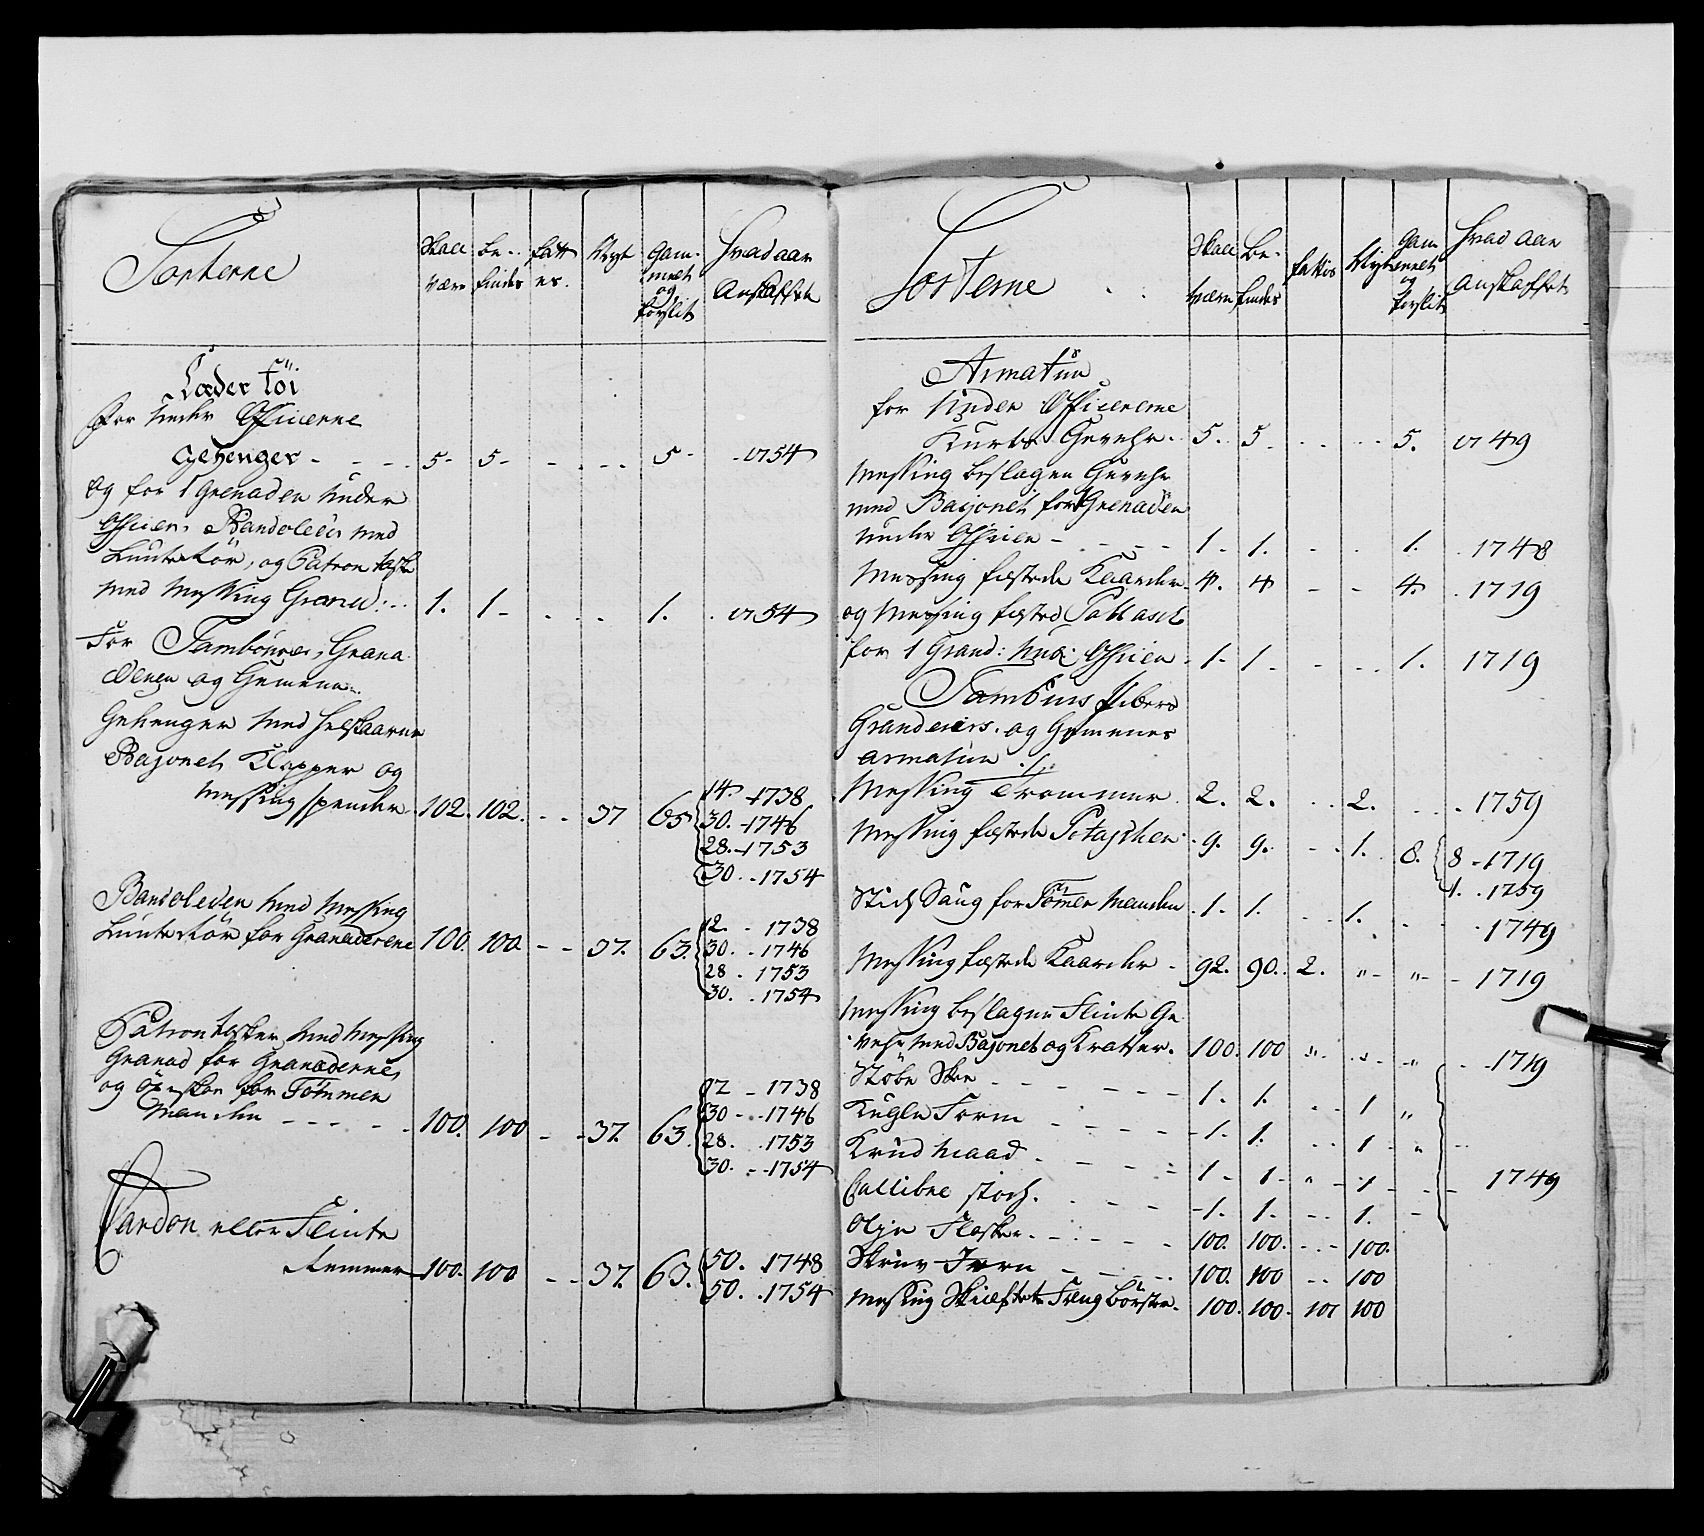 Sorterne
Skall være
be- findes
fatt es.
Nÿgt
Gam- melt og forslit
Hvad aar Anskaffet
Læder töi
For Under Officerne
Gehenger - - - . 5- 5- - - . - - 5- . 1754
og for 1 Grenader Under
Officer, Bandoleer med
Lunte Rör, og Patron taske
med Messing Granad: .. 1. 1- . . 1. . 1754
For Tambourer, Grana
derer og Gemene
Gehenger med
Bajonet Klapper og
Messing spender 102. 102. - - 37 65
14. - 1738
30. - 1746
28. - 1753
30. - 1754
Bandoleren med Messing
Lunte Rör for Granaderene 100. 100. - - 37. 63.
12. - 1738
30. - 1746
28 - 1753
30. - 1754
Patron tasker med Messing
Granad for Granadernes
og for Tömmer
Manden - - - - - 100. 100 - - 37. 63.
12 - 1738
30 - - 1746
28. . 1753
30. - - 1754
Cardon eller Flinte
Remmer 100. 100 - - 37. 63.
50. . 1748
50. . 1754
Sorterne . .
Skall være
Be- findes
fattis
Nÿgt
Gam melt og forslit
Hvad aar anskaffet
Armatur
for Under Officererne
Kurts Gevehr. 5. 5. . . . . . 5. 1749
Messing beslagen Gevehr
med Bajonet for 1 Grenadeer
Under Officer - - - - - 1. 1. . . 1. . 1748
Messing fæstede Kaarder 4. 4 - - 4. . 1719
og Messing fæsted Pallasch
for 1 Grand: Und: Officer . 1. 1. - - . . 1. 1719
Tamburs Pibers
Grandeers. og Gemenes
armatur
Messing Trommer . 2. 2. . . 2. . . . 1759
Messing fæstede 9. 9. . . 1. 8.
8 - 1719
1. . 1759
Stick Saug for Tömer Manden . 1. 1. . . 1. . . 1749
Messing fæstede Kaarder - 92. 90. 2. " - " - - 1719
Messing beslagen Flinte Ge
vehr med Bajonet og Kratser. 100. 100 " . " . - " - . 1749
Stöbe Skee - - - - - - 1. 1. . . 1 "
Kugle Form - - - - - 1. 1. . . 1 - "
Krud Maad - - - - 1 - 1 - " - 1 - - - 1749
Callibre stock. . - - - 1. 1. - - 1. -
Olje Flasker. - - - - - 100. 100. - - - 100.
Skruv Jern - - - - 100. 100 - - 100
Messing Skieftet Feng börster. 100. 100. 100 100